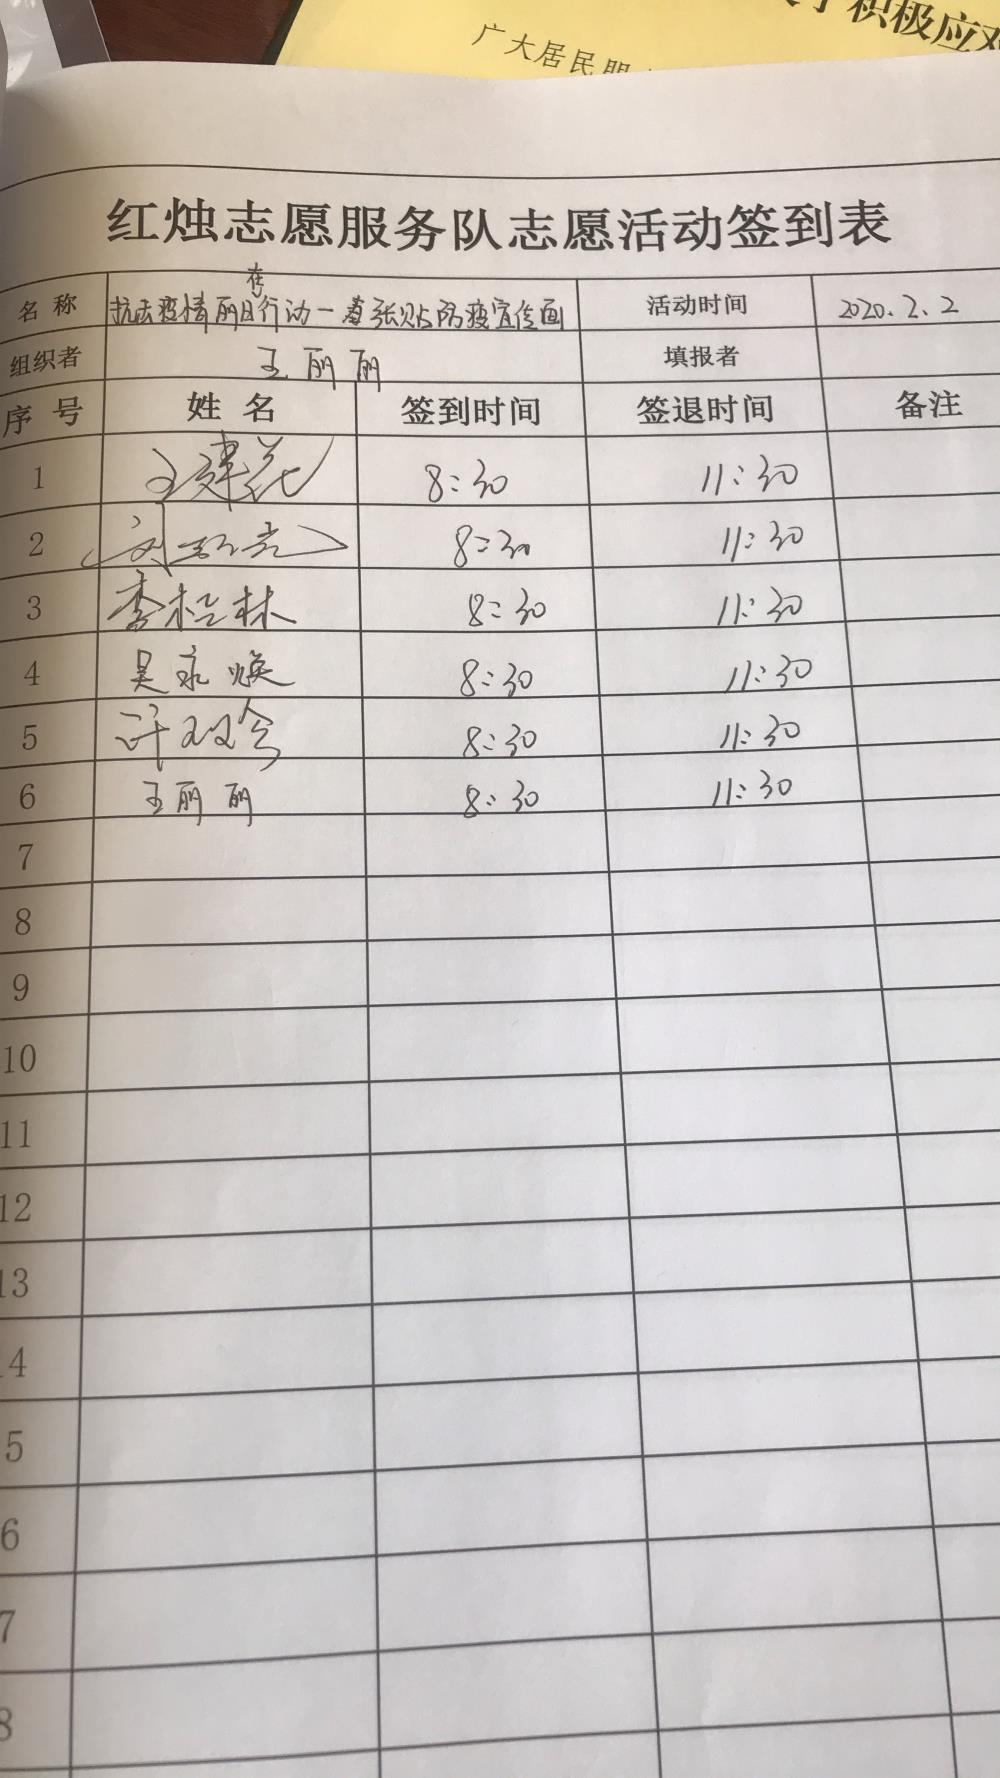 积极应对
广大居民朋
红烛志愿服务队志愿活动签到表
名称 抗击疫情丽日在行动一 张贴防疫宣传画 活动时间 2020.2.2
组织者 王丽丽 填报者
序号 姓名 签到时间 签退时间 备注
1 王建花 8:30 11:30
2 刘 亮 8:30 11:30
3 李桂林 8:30 11:30
4 吴永焕 8:30 11:30
5 许 会 8:30 11:30
6 王丽丽 8:30 11:30
7
8
9
10
11
12
13
4
5
6
7
8